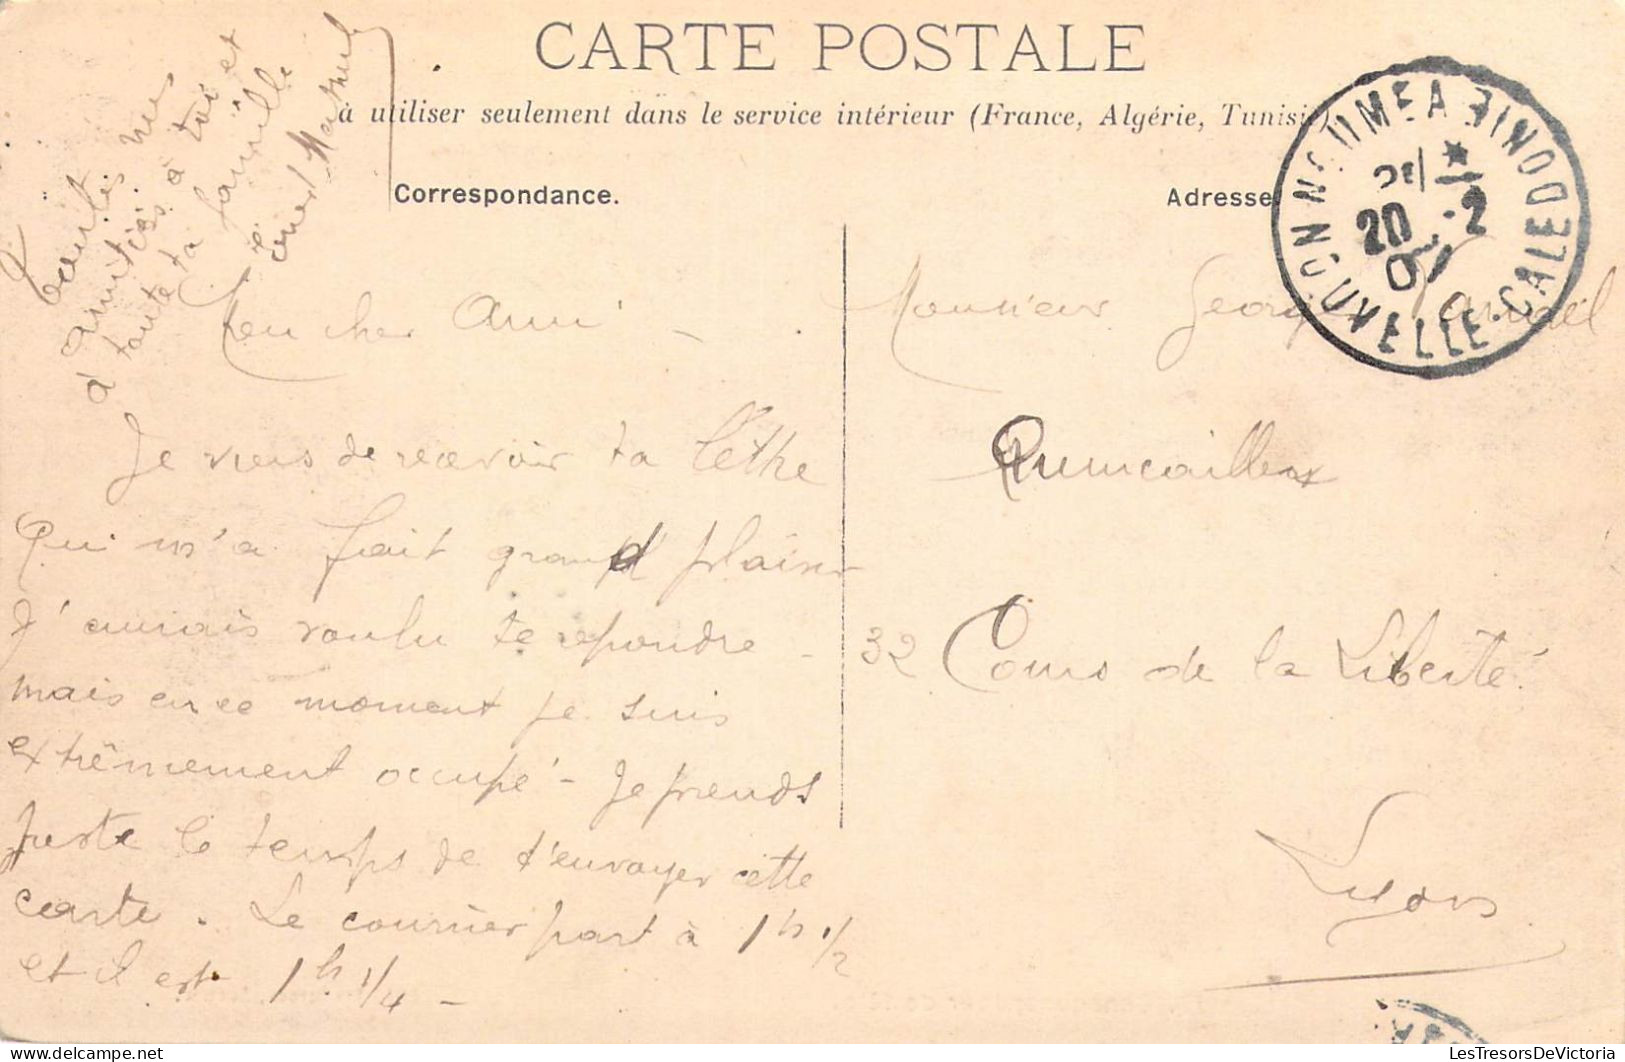 CARTE POSTALE
à utiliser seulement dans le service intérieur (France, Algérie, Tunisie)
Correspondance.
Adresse
Toutes mes
amitiés à toi et
à toute ta famille
Mon cher Ami
Je viens de recevoir ta lettre
Qui m'a fait grand plaisir
J'aurais voulu te repondre -
mais en ce moment je suis
extrêmement occupé - Je prends
juste le temps de t'envoyer cette
carte. Le courrier part à 1h 1/2
et il est 1h 1/4 -
Monsieur Georges
32 Cours de la Liberté
Lyon
NOUMEA
NOUVELLE-CALEDONIE
20 -2
LesTresorsDeVictoria
https://www.delcampe.net